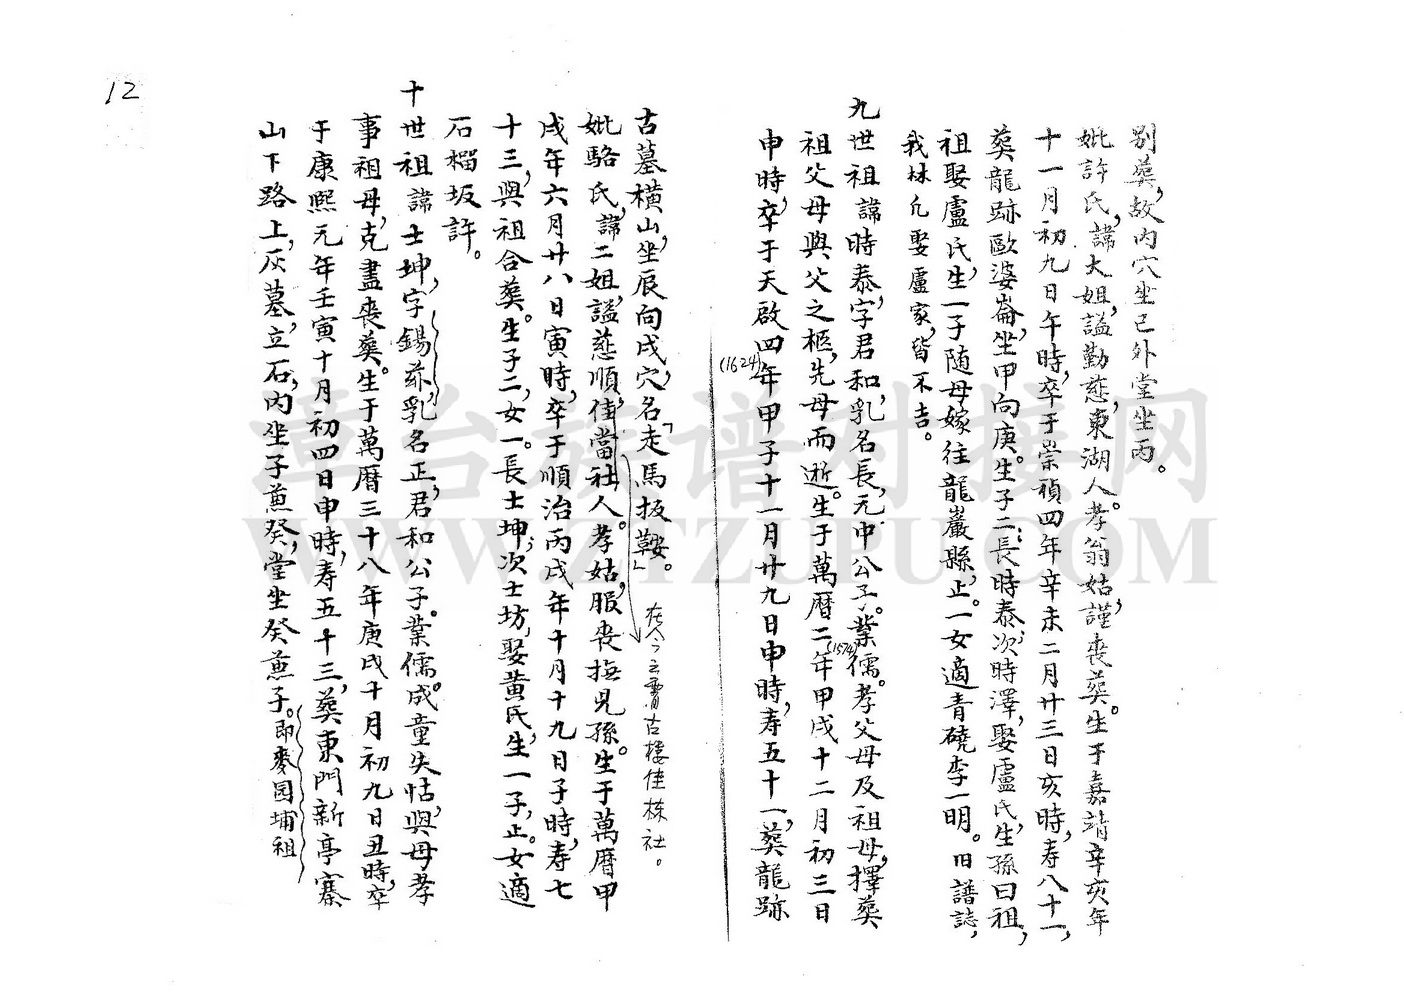 12
別葬，故內穴坐己外堂坐丙。
妣許氏，諱大姐，謚勤慈，東湖人。孝翁姑，謹喪葬。生于嘉靖辛亥年
十一月初九日午時，卒于崇禎四年辛未二月廿三日亥時，寿八十一，
葬龍跡歐婆崙，坐甲向庚。生子二：長時泰，次時澤，娶盧氏，生孫曰祖，
祖娶盧氏，生一子随母嫁往龍巖縣，止。一女適青磽李一明。旧譜誌，
我林凡娶盧家，皆不吉。
九世祖諱時泰，字君和，乳名長，元中公子。業儒。孝父母及祖母，擇葬
祖父母與父之柩，先母而逝。生于萬曆二年(1574)甲戌十二月初三日
申時，卒于天啟四年(1624)甲子十一月廿九日申時，寿五十一，葬龍跡
古墓橫山，坐辰向戌，穴名「走馬扳鞍」。在今之霄古樓佳棟社。
妣駱氏，諱二姐，謚慈順，佳當社人。孝姑，服喪撫兒孫。生于萬曆甲
戌年六月廿八日寅時，卒于順治丙戌年十月十九日子時，寿七
十三，與祖合葬。生子二，女一。長士坤，次士坊，娶黄氏，生一子，止。女適
石榴坂許。
十世祖諱士坤，字錫茲，乳名正，君和公子。業儒。成童失怙，與母孝
事祖母，克盡喪葬。生于萬曆三十八年庚戌十月初九日丑時，卒
于康熙元年壬寅十月初四日申時，寿五十三，葬東門新亭寨
山下路上，灰墓，立石，內坐子兼癸，堂坐癸兼子。即麥园埔祖
章台族谱对接网
WWW.ZTZUPU.COM